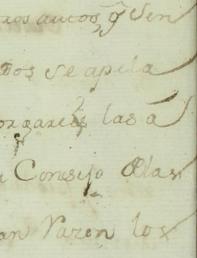 ros autos q̃ Sen
dos se apela
orgareis las a
Consejo Olas
an Razon los